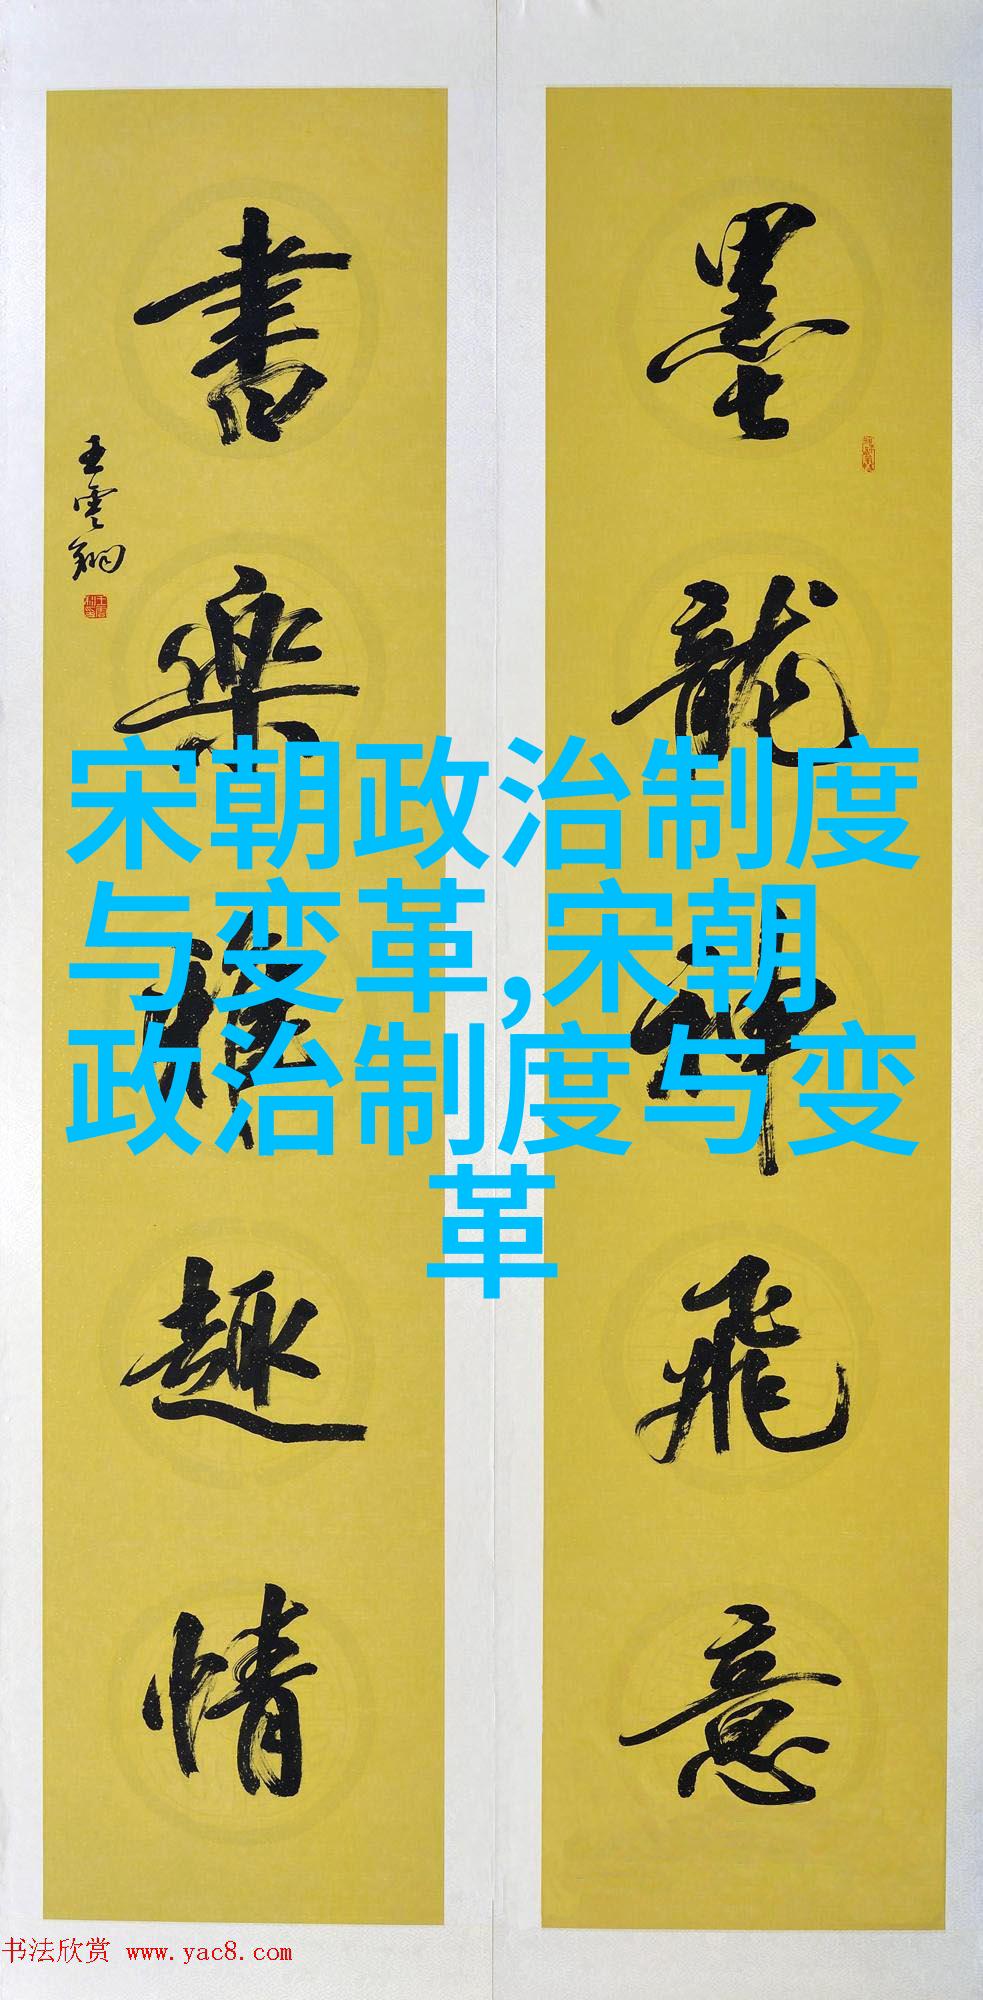 墨龍神飛意
書樂雅趣情
王雲翔
宋朝政治制度
与变革,宋朝
政治制度与变
革
书法欣赏 www.yac8.com